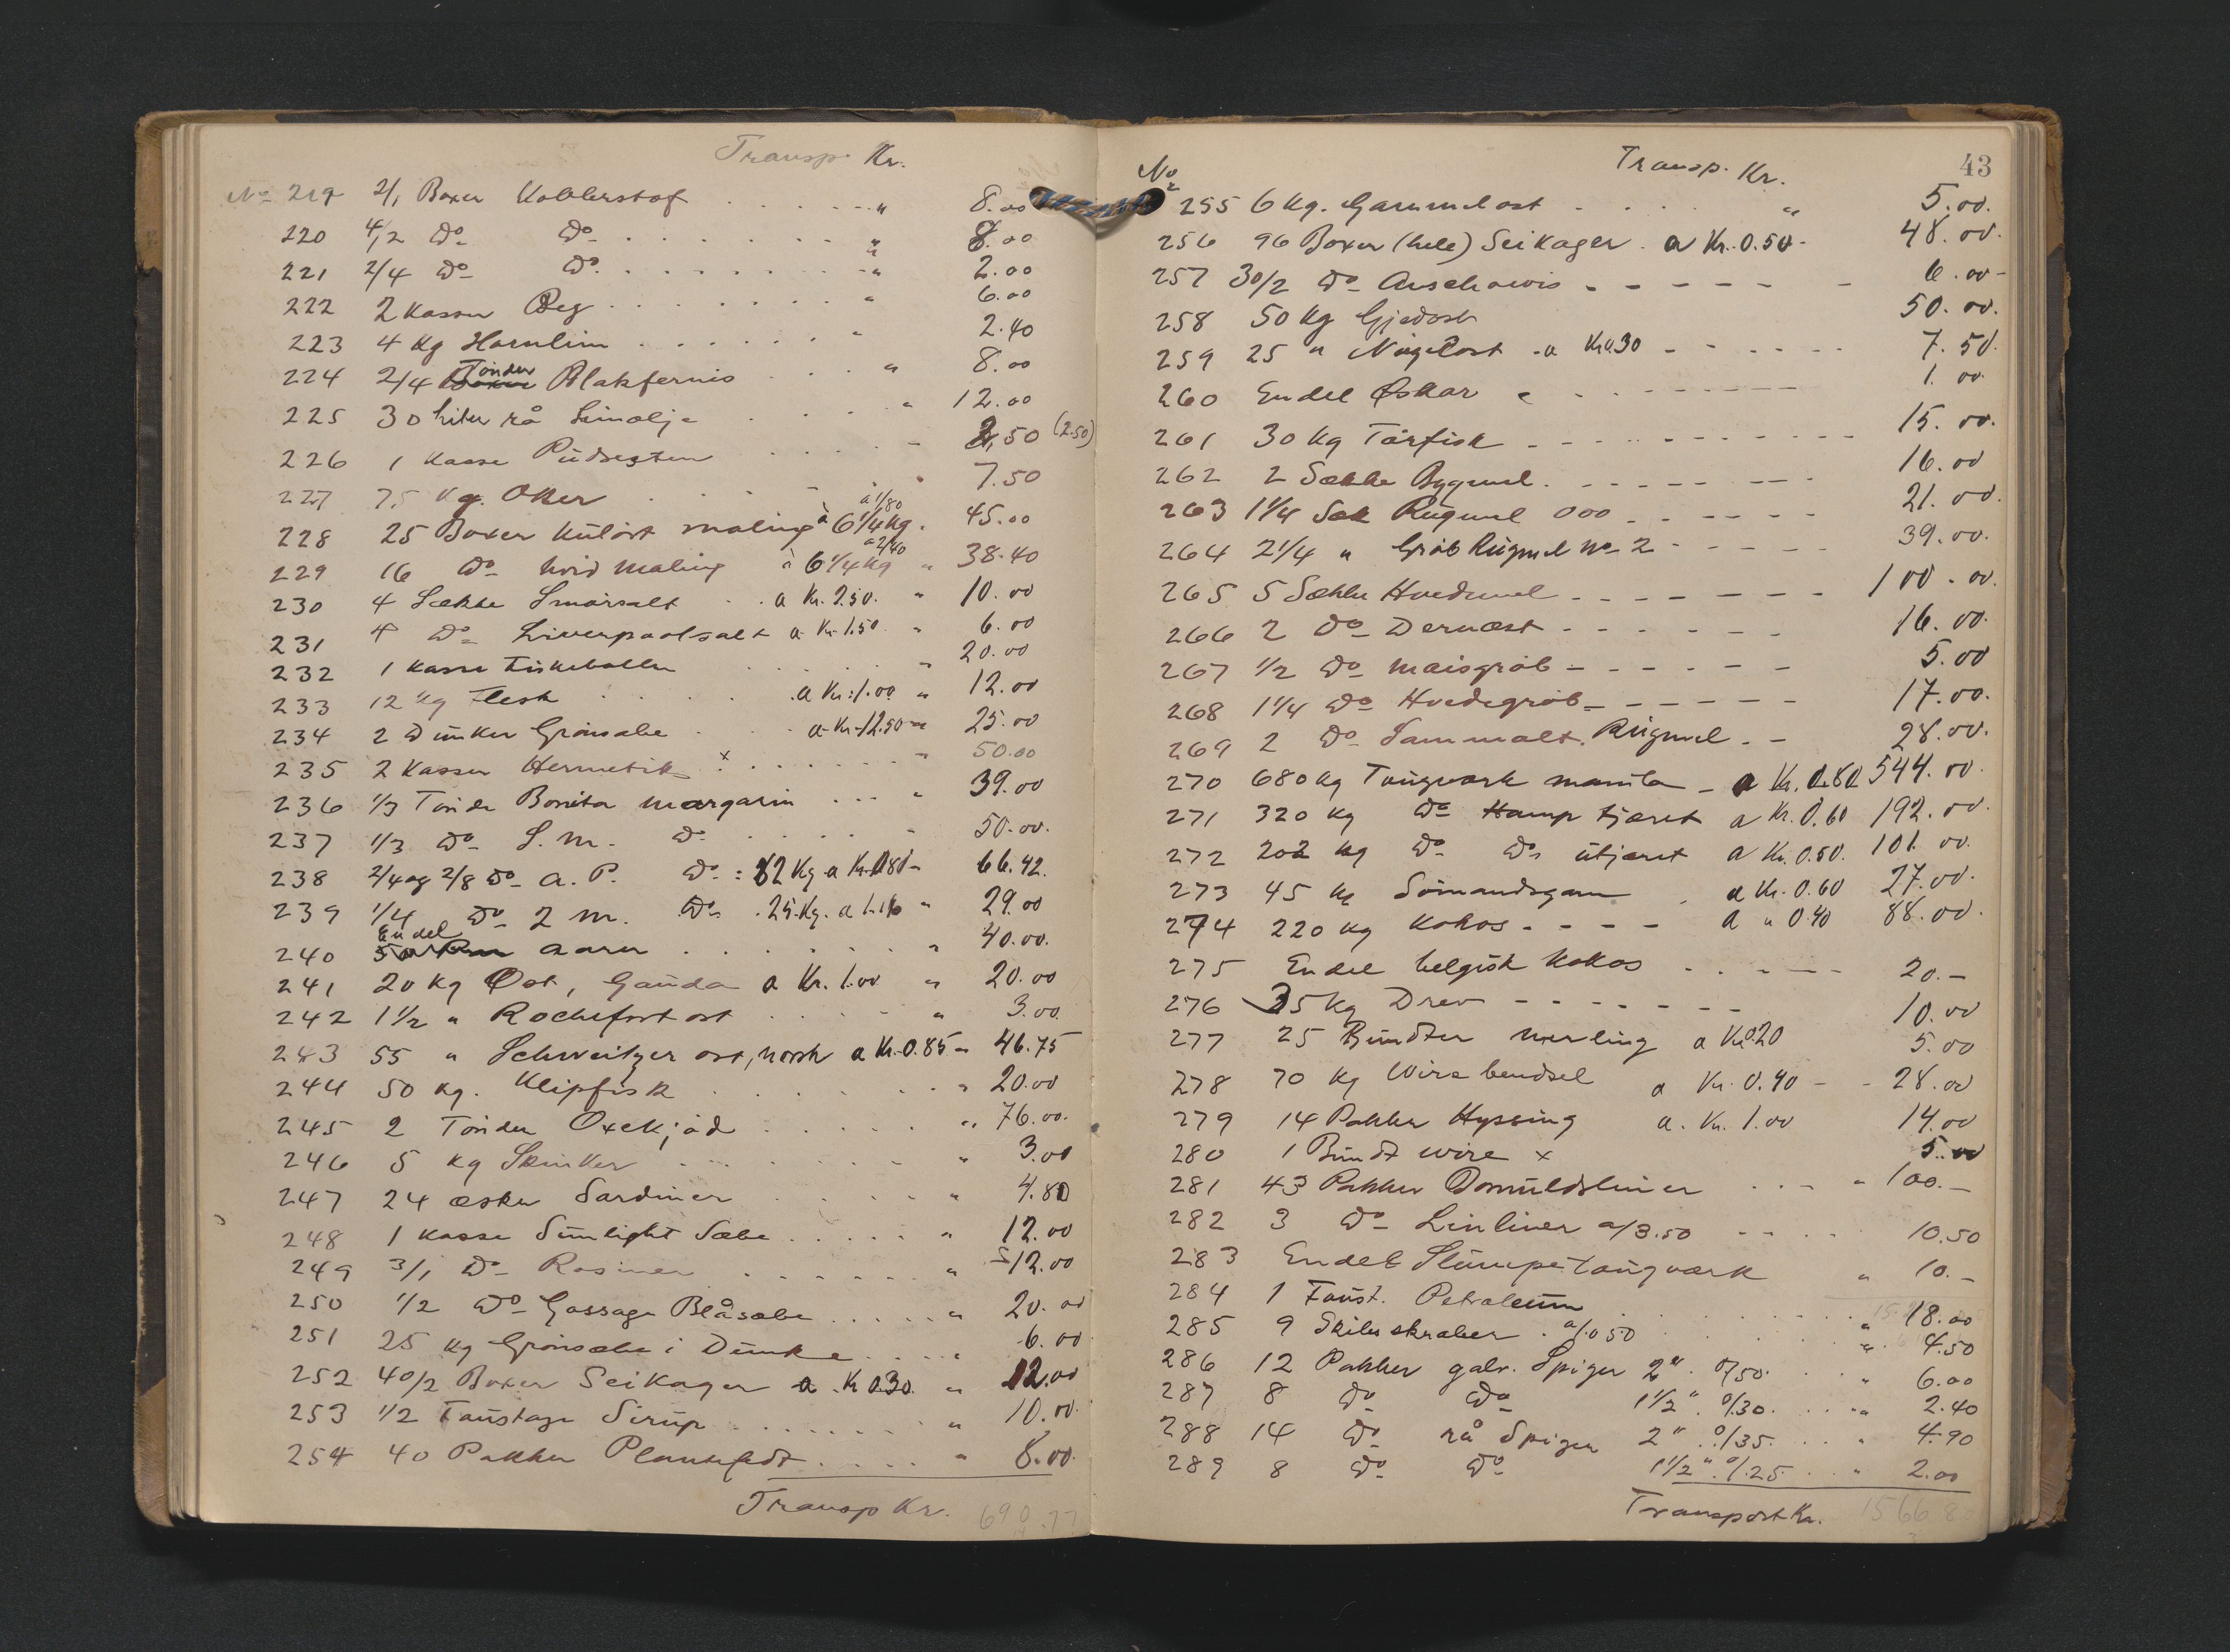 Transp. Kr.
No 219 2/1 Boxer Koblerstof " 8.00
220 4/2 Do Do " 8.00
221 2/4 Do Do " 2.00
222 2 Kasser Beg " 6.00
223 4 Kg Hornlim " 2.40
224 2/4 Tönder Blakfernis " 8.00
225 30 Liter rå Linolje " 12.00
226 1 Kasse Pudsesten 2,50 (2.50)
227 75 Kg. Oker " 7.50
228 25 Boxer Kulört maling à 6 1/4 Kg. a 1/80 45.00
229 16 Do hvid Maling à 6 1/4 Kg a 2/40 " 38.40
230 4 Sække Smörsalt a Kr. 2.50. " 10.00
231 4 Do Liverpoolsalt a Kr. 1.50 " 6.00
232 1 Kasse Fiskeboller " 20.00
233 12 Kg Flesk a Kr: 1.00 " 12.00
234 2 Dunker Grönsabe a Kr. 12.50 " 25.00
235 2 Kasser Hermetik x " 50.00
236 1/3 Tönde Bonita margarin " 39.00
237 1/3 Do S. M. Do " 50.00.
238 2/4 og 2/8 Do A. P. Do : 82 Kg a Kr 0.81 66.42.
239 1/4 Do 2 M. Do 25 Kg. a 1.16 " 29.00
240 Endel aarer " 40.00.
241 20 Kg Ost, Gauda a Kr. 1.00 " 20.00
242 1 1/2 " Rochefort ost " 3.00.
243 55 " Schweitzer ost, norsk a Kr. 0.85 " 46.75
244 50 Kg. Klipfisk " 20.00
245 2 Tönder Oxekjöd " 76.00.
246 5 Kg Skinker " 3.00
247 24 æsker Sardiner " 4.80
248 1 Kasse Sunlight Sæbe " 12.00
249 3/1 Do Rosiner " 12.00
250 1/2 Do Gossage Blåsæbe " 20.00
251 25 Kg Grönsæbe i Dunke " 6.00
252 40/2 Boxer Seikager a Kr 0.30. " 12.00
253 1/2 Faustage Sirup " 10.00.
254 40 Pakker Plantefedt " 8.00.
Transp Kr. 690.77
43
No Transp. Kr.
255 6 Kg. Gammelost " 5.00.
256 96 Boxer (hele) Seikager a Kr. 0.50 48.00.
257 30/2 Do Anschovis 6.00
258 50 Kg Gjedost 50.00.
259 25 " Nögelost a Kr 0.30 7.50.
260 Endel Øskar " 1.00.
261 30 Kg Törfisk 15.00.
262 2 Sække Bygmel 16.00
263 1 1/4 Sæk Rugmel 000 21.00.
264 2 1/4 " Grob Rugmel No 2 39.00.
265 5 Sække Hvedemel 100.00.
266 2 Do Dernæst 16.00.
267 1/2 Do Maisgröb 5.00
268 1 1/4 Do Hvedegröb 17.00.
269 2 Do Sammalt Rugmel 28.00.
270 680 Kg Taugværk manila a Kr. 0.80 544.00
271 320 Kg Do Hamp tjæret a Kr. 0.60 192.00.
272 202 Kg Do Do utjæret a Kr. 0.50. 101.00.
273 45 Kg Sömandsgarn a Kr. 0.60 27.00.
274 220 Kg Kokos a " 0.40 88.00.
275 Endel belgisk Kokos 20.-
276 35 Kg Drev 10.00
277 25 Bundter merling a Kr 0.20 5.00
278 70 Kg Wire bendsel a Kr. 0.40 28.00
279 14 Pakker Hyssing a. Kr. 1.00 14.00
280 1 Bundt wire x 5.00
281 43 Pakker Bomuldsliner " 100.-
282 3 Do Linliner a/3.50 10.50
283 Endel Stumpe taugværk " 10.-
284 1 Faust. Petroleum " 18.00
285 9 Skibsskraber a/.0.50 " 4.50
286 12 Pakker galv. Spiger 2" 0/50. " 6.00
287 8 Do Do 1 1/2" 0/.30. " 2.40
288 14 Do rå Spiger 2" 0/35. " 4.90
289 8 Do Do 1 1/2" 0/.25. " 2.00
Transport Kr. 1566.80